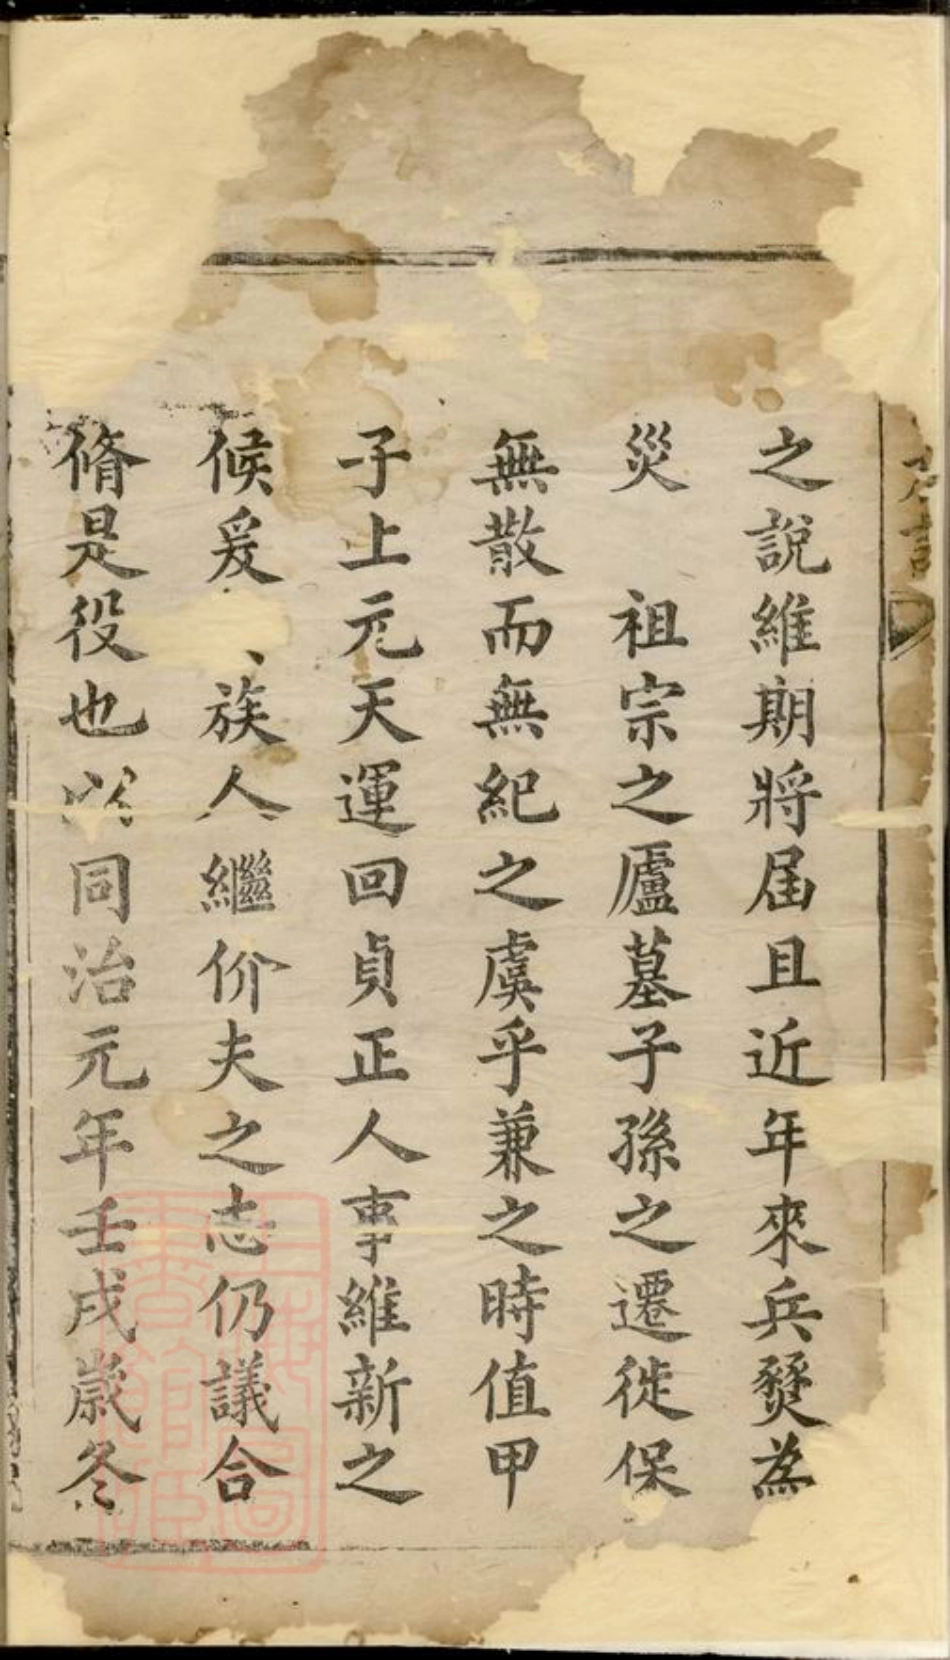 之說維期將屆且近年來兵燹為
災　祖宗之廬墓子孫之遷徙保
無散而無紀之虞乎兼之時值甲
子上元天運回貞正人事維新之
候爰族人繼价夫之志仍議合
脩是役也以同治元年壬戌歲冬